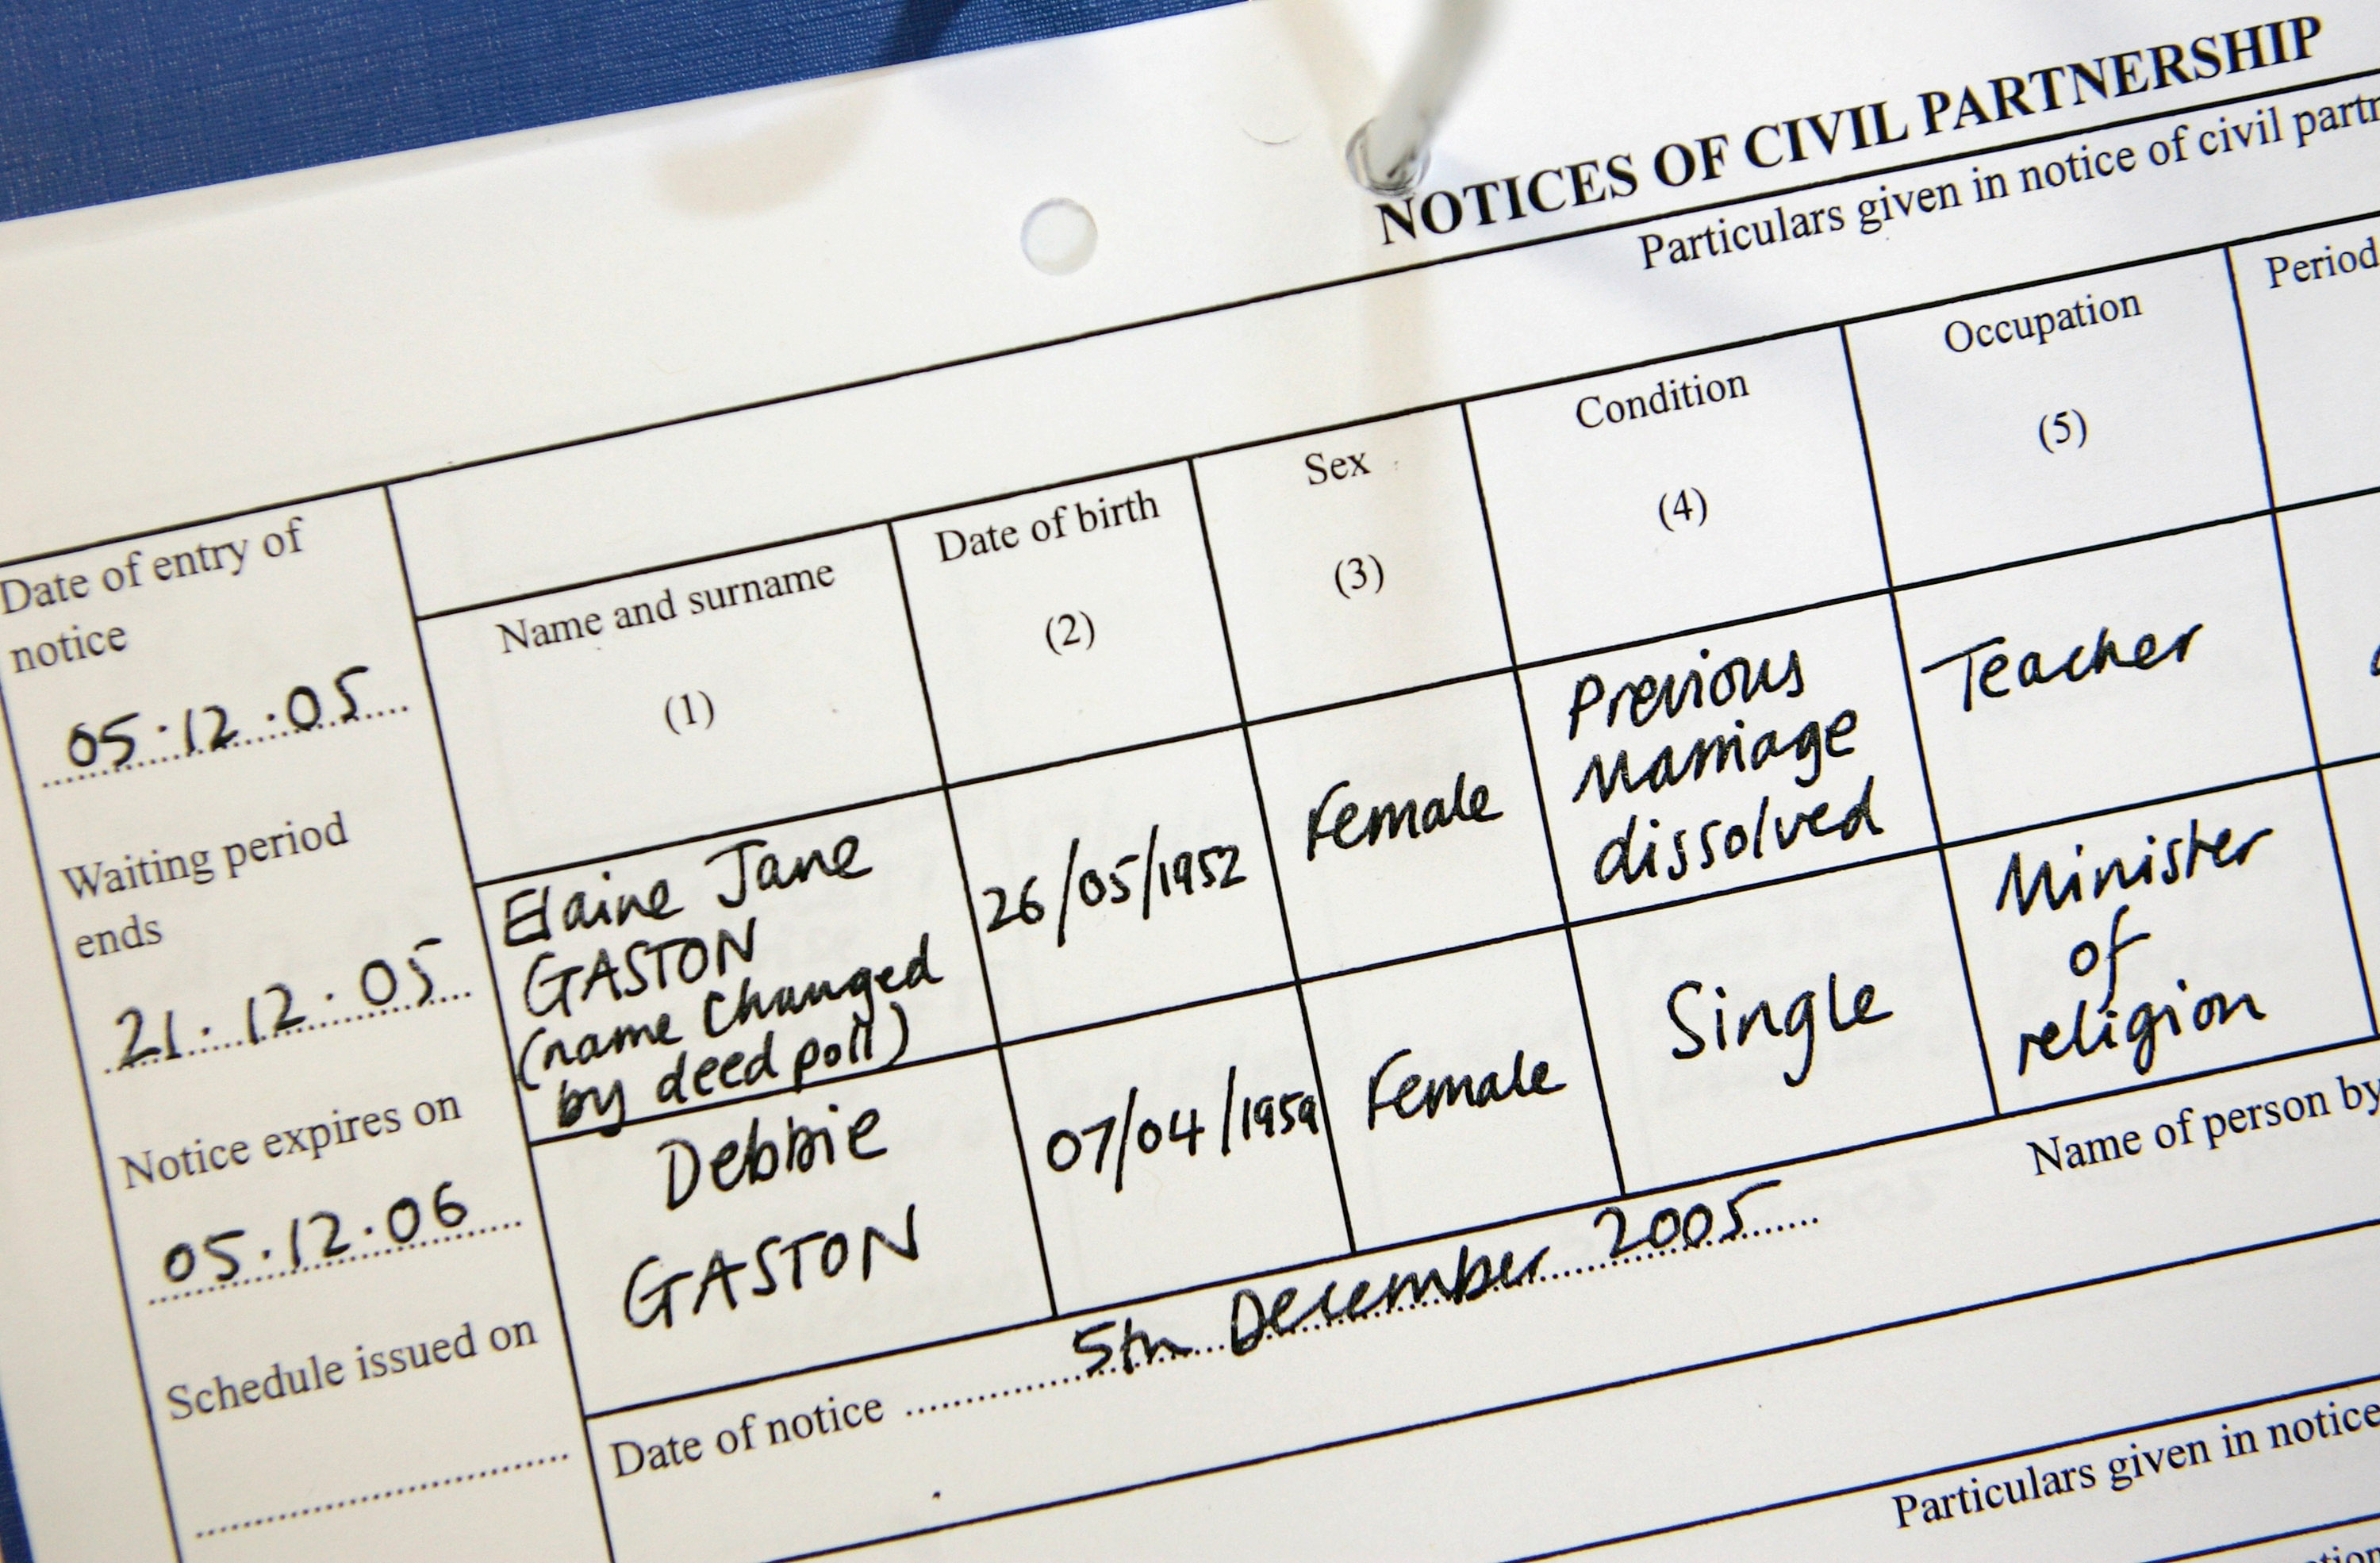 NOTICES OF CIVIL PARTNERSHIP
Particulars given in notice of civil
Date of entry of
notice
05.12.05
Waiting period
ends
21.12.05
Notice expires on
05.12.06
Schedule issued on
Name and surname
(1)
Date of birth
(2)
Sex
(3)
Condition
(4)
Occupation
(5)
Period
Elaine Jane
GASTON
(name changed
by deed poll)
26/05/1952
Female
Previous
marriage
dissolved
Teacher
Debbie
GASTON
07/04/1959
Female
Single
Minister
of
religion
Date of notice 5th December 2005
Name of person by
Particulars given in notice